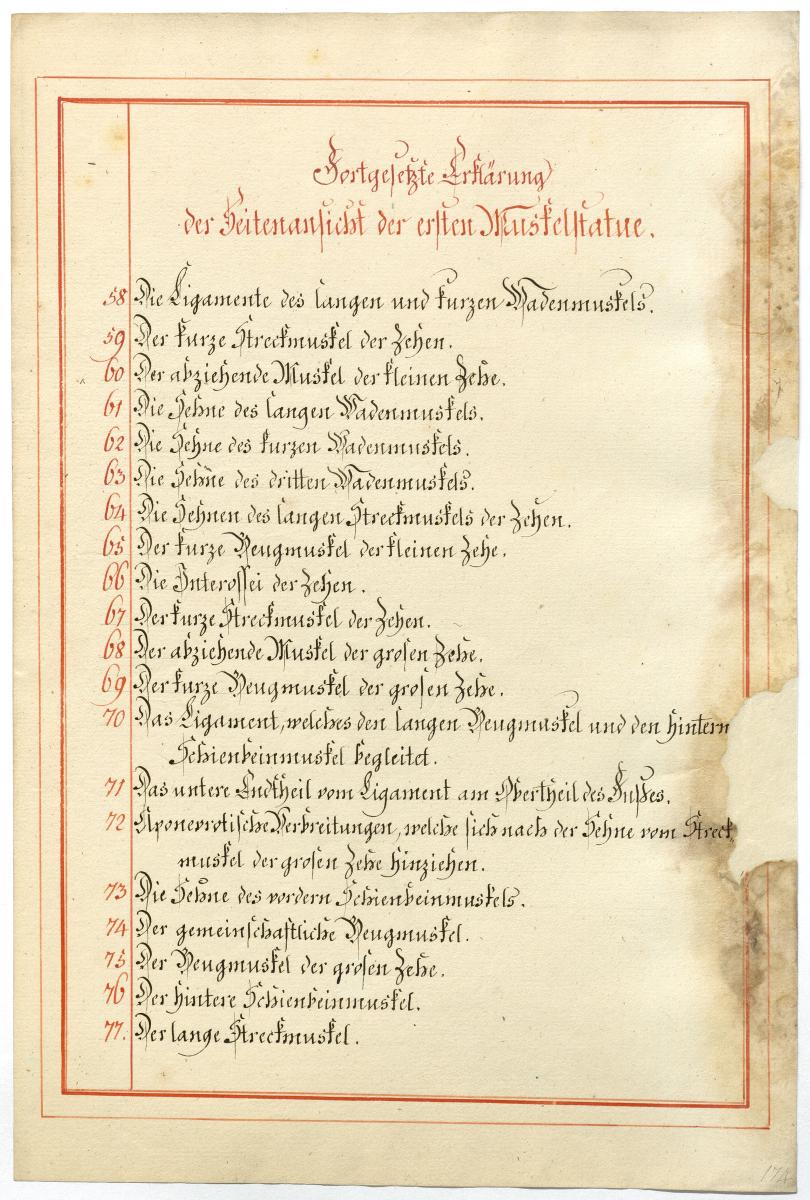 Fortgesetzte Erklärung
der Seitenansicht der ersten Muskelstatue.
58 Die Ligamente des langen und kurzen Wadenmuskels.
59 Der kurze Streckmuskel der Zehen.
60 Der abziehende Muskel der kleinen Zehe.
61 Die Sehne des langen Wadenmuskels.
62 Die Sehne des kurzen Wadenmuskels.
63 Die Sehne des dritten Wadenmuskels.
64 Die Sehnen des langen Streckmuskels der Zehen.
65 Der kurze Beugmuskel der kleinen Zehe.
66 Die Interossei der Zehen.
67 Der kurze Streckmuskel der Zehen.
68 Der abziehende Muskel der grosen Zehe.
69 Der kurze Beugmuskel der grosen Zehe.
70 Das Ligament, welches den langen Beugmuskel und den hintern
Schienbeinmuskel begleitet.
71 Das untere Endtheil vom Ligament am Obertheil des Fußes.
72 Aponevrotische Verbreitungen, welche sich nach der Sehne vom Streck-
muskel der grosen Zehe hinziehen.
73 Die Sehne des vordern Schienbeinmuskels.
74 Der gemeinschaftliche Beugmuskel.
75 Der Beugmuskel der grosen Zehe.
76 Der hintere Schienbeinmuskel.
77. Der lange Streckmuskel.